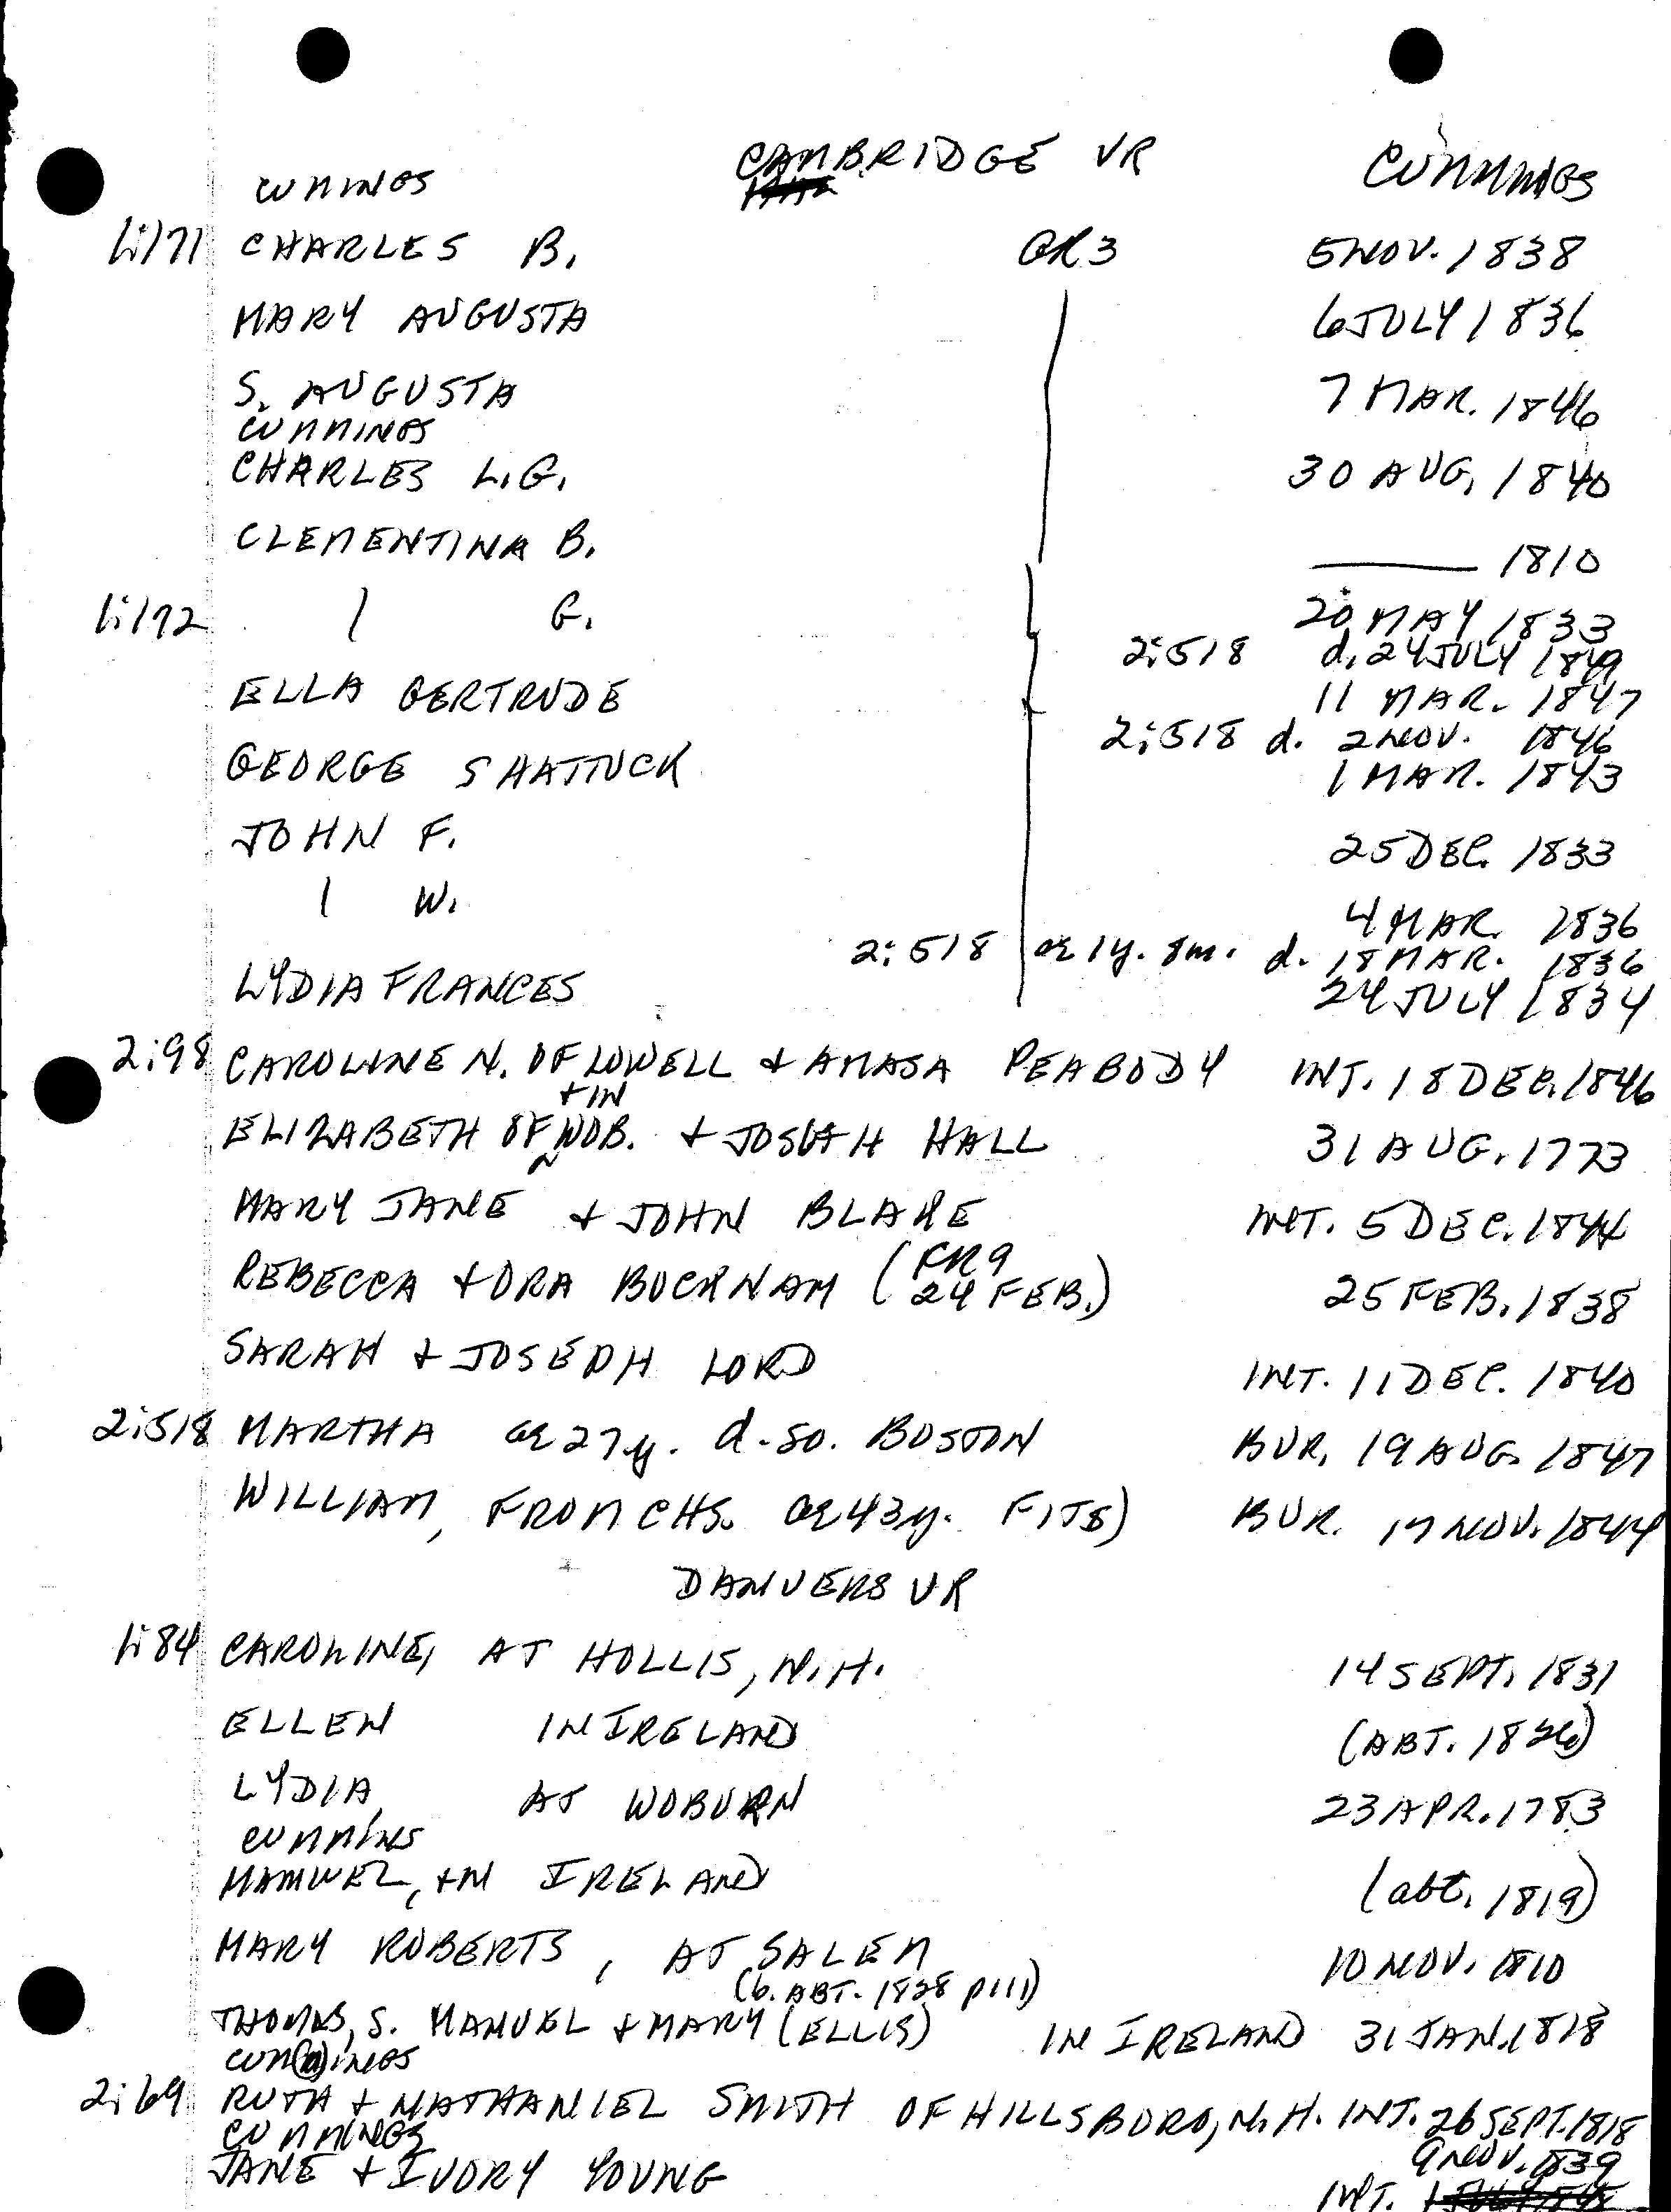 CAMBRIDGE VR CUMMINGS
CUMINGS
1:171 CHARLES B. GR3 5 NOV. 1838
MARY AUGUSTA 6 JULY 1836
S. AUGUSTA 7 MAR. 1846
CUMMINGS
CHARLES L.G. 30 AUG. 1840
CLEMENTINA B. 1810
1:172 G. 20 MAY 1833
2:518 d. 24 JULY 1849
ELLA GERTRUDE 11 MAR. 1847
2:518 d. 2 NOV. 1846
GEORGE SHATTUCK 1 MAR. 1843
JOHN F. 25 DEC. 1833
W. 4 MAR. 1836
2:518 ae 1y. 8m. d. 18 MAR. 1836
LYDIA FRANCES 24 JULY 1834
2:98 CAROLINE N. OF LOWELL & AMASA PEABODY INT. 18 DEC. 1846
+ IN
ELIZABETH OF WOB. + JOSIAH HALL 31 AUG. 1773
MARY JANE + JOHN BLAKE INT. 5 DEC. 1844
REBECCA + ORA BUCKNAM (CR9 24 FEB.) 25 FEB. 1838
SARAH & JOSEPH LORD INT. 11 DEC. 1840
2:518 MARTHA ae 27 y. d. SO. BOSTON BUR. 19 AUG. 1847
WILLIAM, FROM CHS. ae 43 y. FITS) BUR. 17 NOV. 1844
DANVERS VR
1:84 CAROLINE, AT HOLLIS, N.H. 14 SEPT. 1831
ELLEN IN IRELAND (ABT. 1826)
LYDIA, AT WOBURN 23 APR. 1783
CUMMINS
MANUEL, IN IRELAND (abt. 1819)
MARY ROBERTS, AT SALEM 10 NOV. 1810
(b. ABT. 1828 p111)
THOMAS, S. MANUEL & MARY (ELLIS) IN IRELAND 31 JAN. 1818
CUM(M)INGS
2:69 RUTH + NATHANIEL SMITH OF HILLSBORO, N.H. INT. 26 SEPT. 1818
CUMMINGS 9 NOV. 1839
JANE + IVORY YOUNG INT.